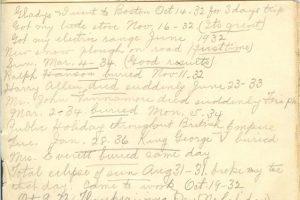 Gladys + I went to Boston Oct 14-32 for 3 days trip
Got my little stove Nov. 16-32 (Its great)
Got my electric range June 1932
New snow plough on road (first time)
Sun. Mar. 4-34 (Good results)
Ralph Hanson buried Nov. 11. 32
Harry Allen died suddenly June 23-33
Mr. John died suddenly
Mar. 2-34 buried Mon. 5. 34
Public Holiday throughout British Empire
Tues. Jan. 28-36 King George V buried
Mrs. Everett buried same day
Total eclipse of sun Aug 31-31. broke my
that day. Came to work Oct. 19-32